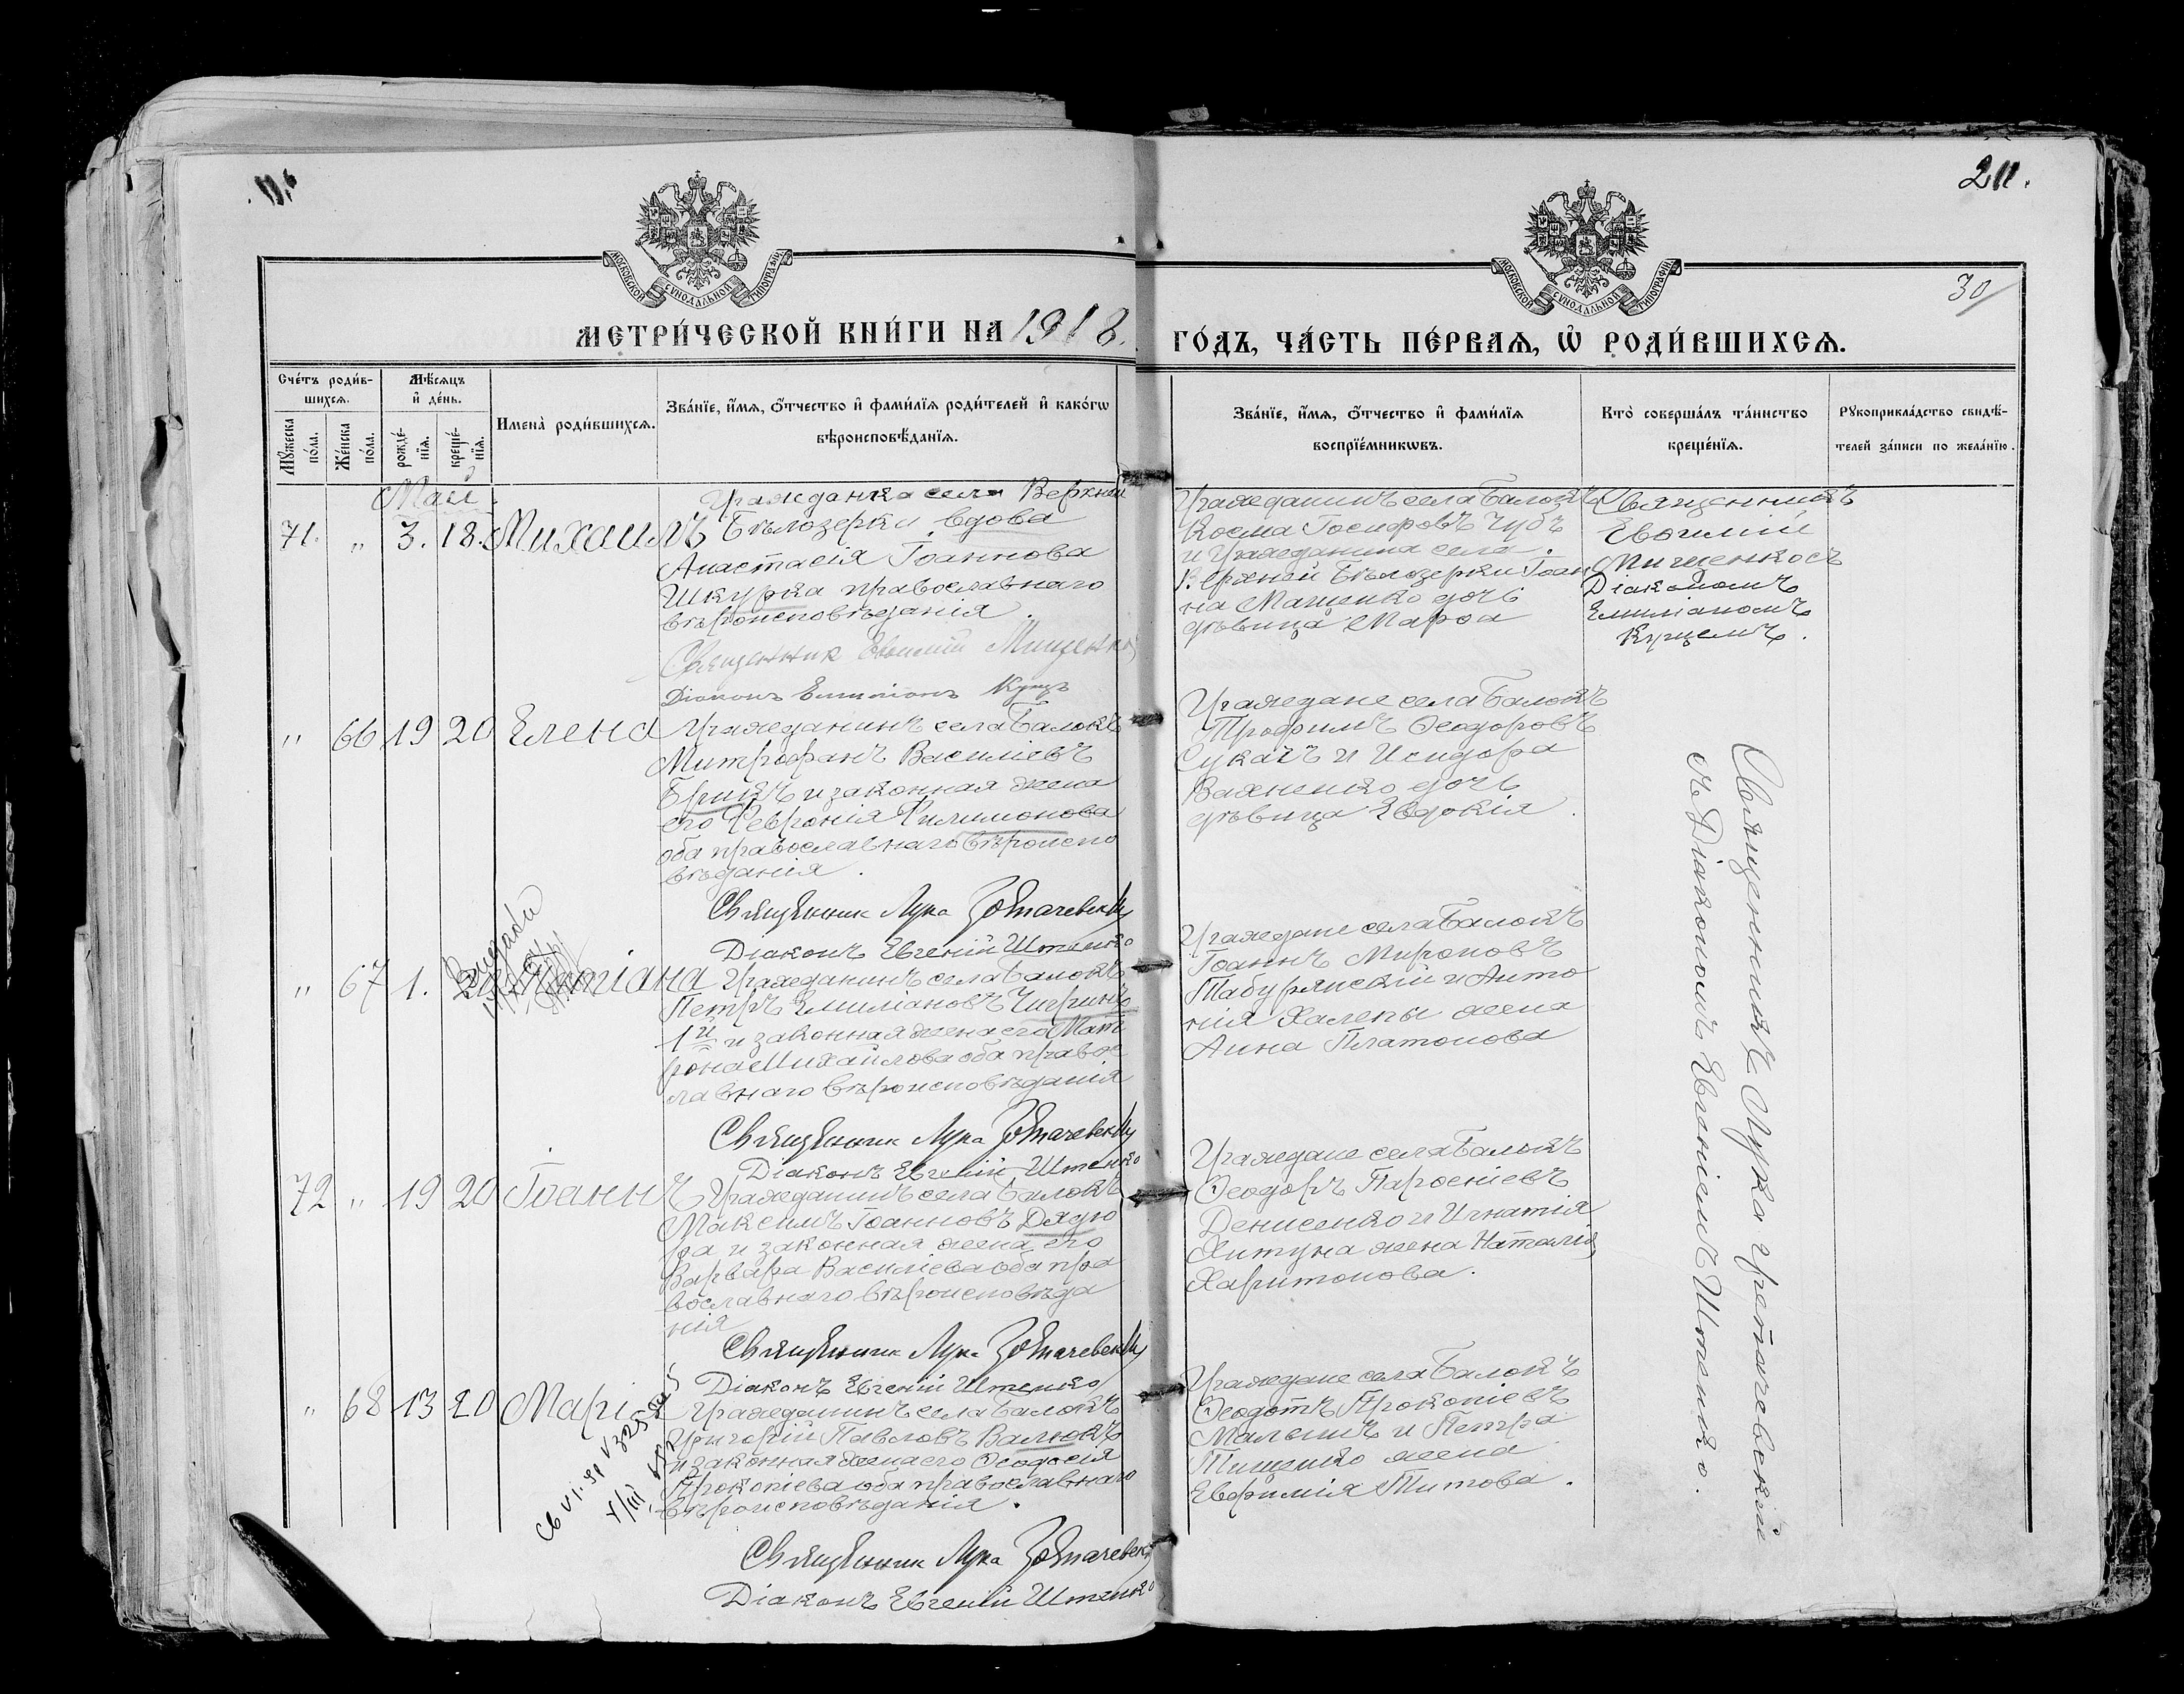 211.
30
МОСКОВСКОЙ СѴНОДАЛЬНОЙ ТИПОГРАФІИ
МОСКОВСКОЙ СѴНОДАЛЬНОЙ ТИПОГРАФІИ
МЕТРИ́ЧЕСКОЙ КНИ́ГИ НА 1918.
ГО́ДЪ, ЧА́СТЬ ПЕ́РВАѦ, Ѡ҆ РОДИ́ВШИХСѦ.
Сче́тъ роди́в-
шихсѧ.
Мꙋ́жеска
по́ла.
Же́нска
по́ла.
Мѣ́сѧцъ
и҆ де́нь.
рожде́-
нїѧ.
креще́-
нїѧ.
Имена̀ роди́вшихсѧ.
Зва́нїе, и҆́мѧ, ѻ҆́тчество и҆ фами́лїѧ роди́телей и҆ како́гѡ
вѣроисповѣ́данїѧ.
Зва́нїе, и҆́мѧ, ѻ҆́тчество и҆ фами́лїѧ
воспрїе́мникѡвъ.
Кто̀ соверша́лъ та́инство
креще́нїѧ.
Рꙋкоприкла́дство свидѣ́-
телей за́писи по жела́нїю.
Май.
71. „ 3. 18. Михаилъ
Гражданка села Верхней
Бѣлозерки вдова
Анастасія Іоаннова
Шкурка православнаго
вѣроисповѣданія.
Священник Евфимій Мищенко
Діаконъ Емиліанъ Куцъ
Гражданинъ села Балокъ
Косма Іосифовъ Чубъ
и гражданина села
Верхней Бѣлозерки Іоан
на Мащенко дочь
дѣвица Марфа
Священникъ
Евфимій
Мищенкосъ
Діакономъ
Емиліаномъ
Куцемъ.
„ 66 19 20 Елена
Гражданинъ села Балокъ
Митрофанъ Василіевъ
Брикъ и законная жена
его Февронія Филимонова
оба православнаго вѣроиспо
вѣданія.
Священник Лука
Діаконъ Евгеній Штенко
Граждане села Балокъ
Трофимъ Ѳеодоровъ
Сукачъ и Исидора
Важненко дочь
дѣвица Евдокія.
„ 67 1. 20 Татіана
Гражданинъ села Балокъ
Петръ Емиліановъ
1й и законная жена его Мат
рона Михайлова оба правос
лавнаго вѣроисповѣданія
Священник Лука
Діаконъ Евгеній Штенко
Граждане села Балокъ
Іоаннъ Мироновъ
Табурянскій и Анто
нія Халепы жена
Анна Платонова
72 „ 19 20 Іоаннъ
Гражданинъ села Балокъ
Максимъ Іоанновъ Дядю
ра и законная жена его
Варвара Василіева оба пра
вославнаго вѣроисповѣда
нія
Священник Лука
Діаконъ Евгеній Штенко
Граждане села Балокъ
Ѳеодоръ Парѳеніевъ
Денисенко и Игнатія
Хитуна жена Наталія
Харитонова.
„ 68 13 20 Марія
Гражданинъ села Балокъ
Григорій Павловъ Валюкъ
и законная жена его Ѳеодосія
Прокопіева оба православнаго
вѣроисповѣданія.
Священник Лука
Діаконъ Евгеній Штенко
Граждане села Балокъ
Ѳеодотъ Прокопіевъ
Малышъ и Петра
Тищенко жена
Евфимія Титова.
Священникъ Лука
съ Діакономъ Евгеніемъ Штенко.